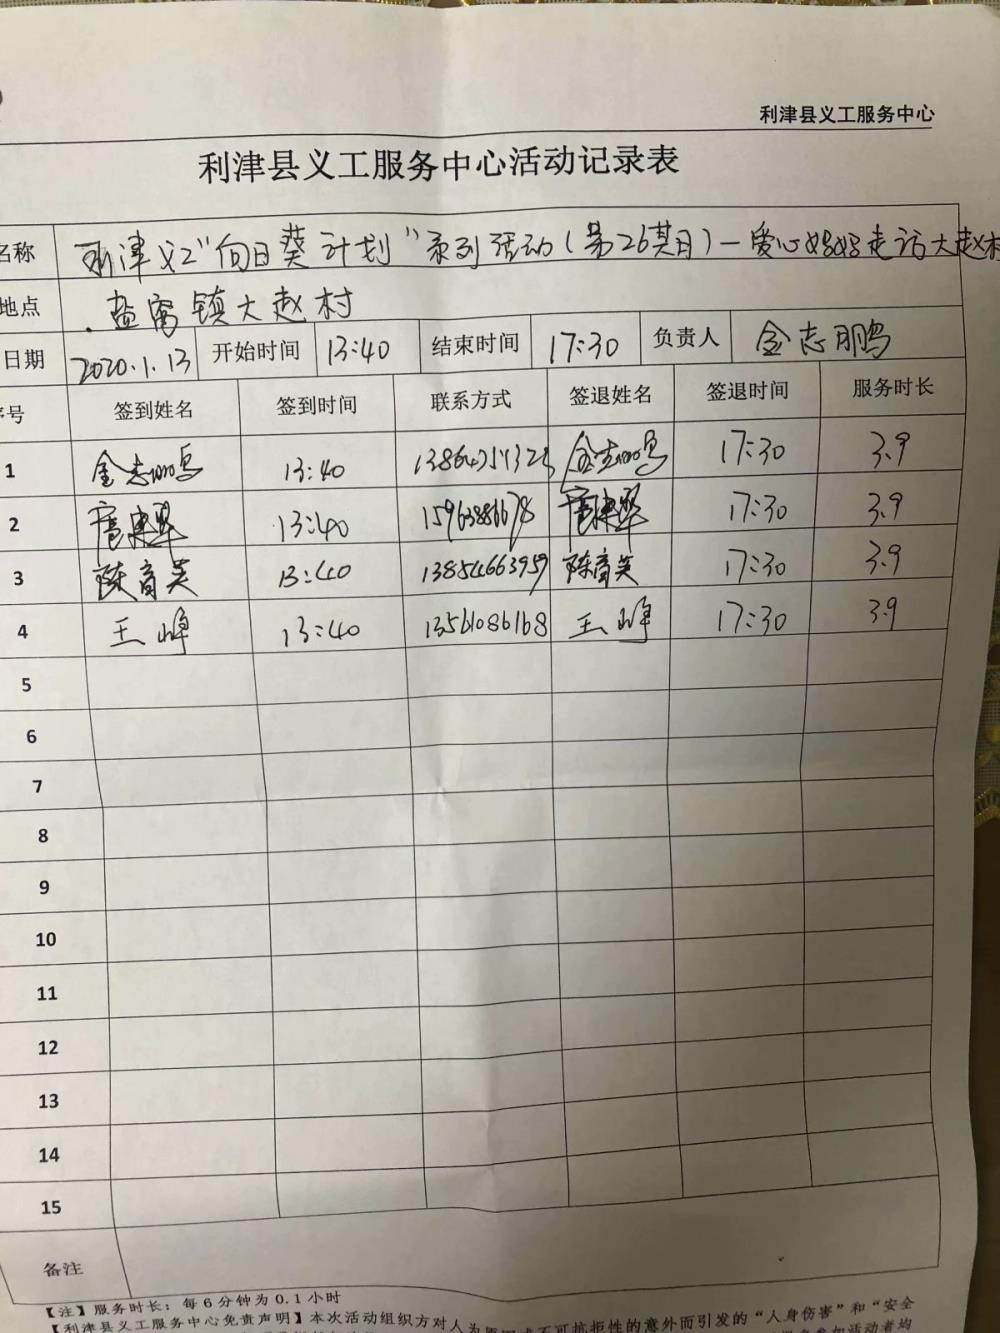 利津县义工服务中心
利津县义工服务中心活动记录表
名称 利津义工“向日葵计划”系列活动(第26期)—爱心妈妈走访大赵村
地点 盐窝镇大赵村
日期 2020.1.13 开始时间 13:40 结束时间 17:30 负责人 金志鹏
序号 签到姓名 签到时间 联系方式 签退姓名 签退时间 服务时长
1 金志鹏 13:40 金志鹏 17:30 3.9
2 13:40 15963886678 17:30 3.9
3 陈育英 13:40 13854663959 陈育英 17:30 3.9
4 王峥 13:40 13561086168 王峥 17:30 3.9
5
6
7
8
9
10
11
12
13
14
15
备注
【注】服务时长：每6分钟为0.1小时
【利津县义工服务中心免责声明】本次活动组织方对人为原因或不可抗拒性的意外而引发的“人身伤害”和“安全